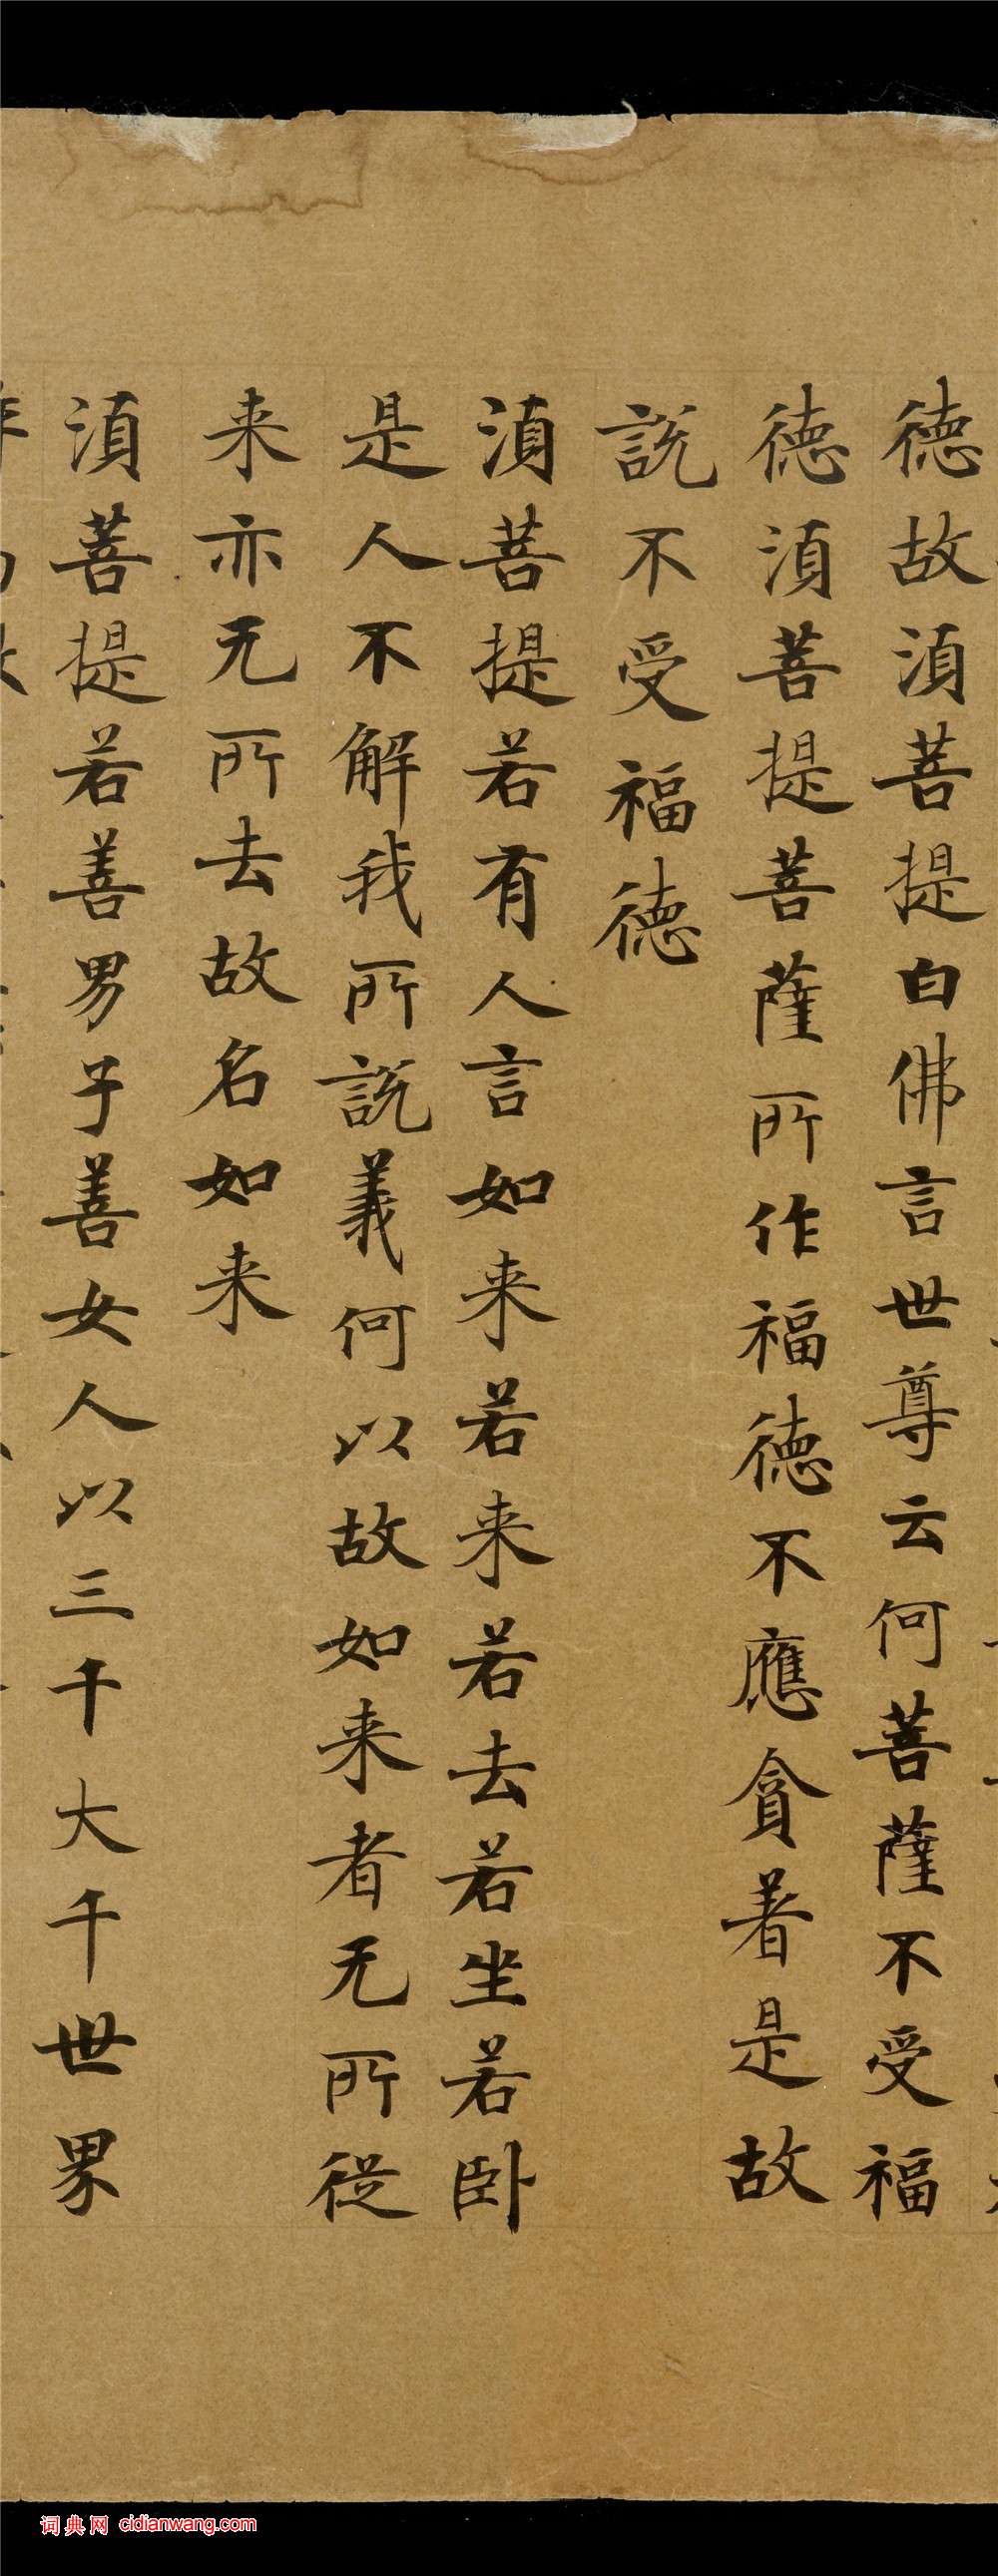 德故須菩提白佛言世尊云何菩薩不受福
德須菩提菩薩所作福德不應貪著是故
說不受福德
須菩提若有人言如来若来若去若坐若卧
是人不解我所說義何以故如来者无所従
来亦无所去故名如来
須菩提若善男子善女人以三千大千世界
词典网 cidianwang.com